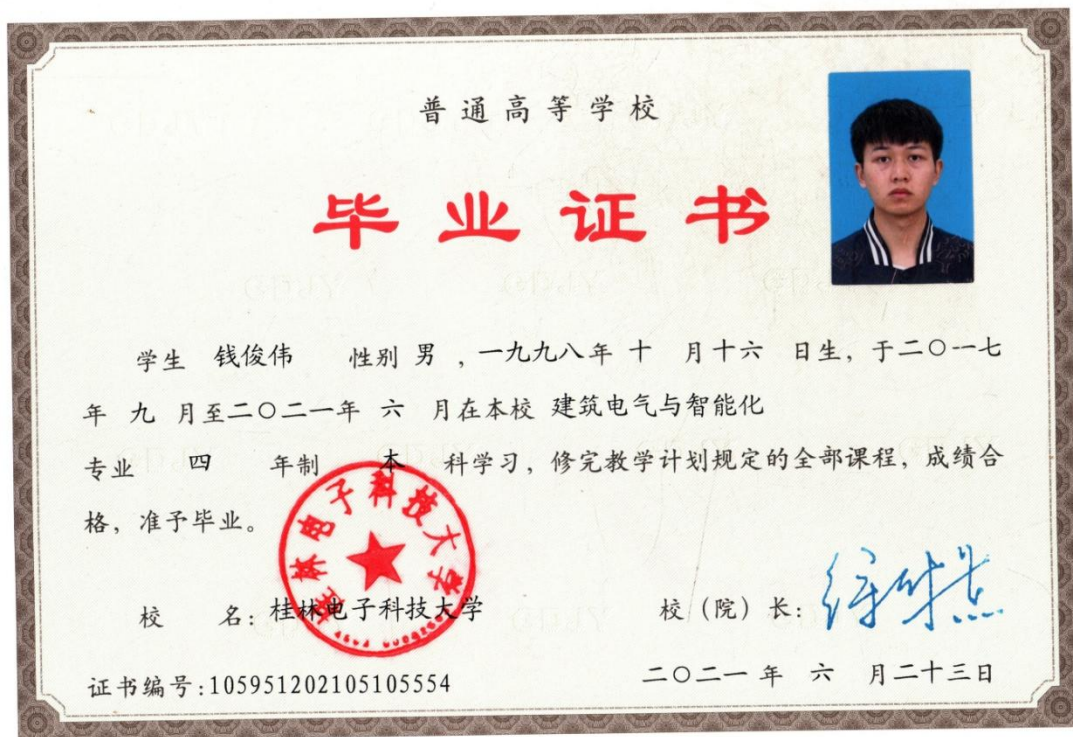 普通高等学校
毕业证书
学生 钱俊伟 性别 男 ，一九九八年 十 月十六 日生，于二〇一七
年 九 月至二〇二一年 六 月在本校 建筑电气与智能化
专业 四 年制 本 科学习，修完教学计划规定的全部课程，成绩合
格，准予毕业。
桂林电子科技大学
校 名：桂林电子科技大学 校（院）长：
证书编号:105951202105105554 二〇二一年 六 月二十三日